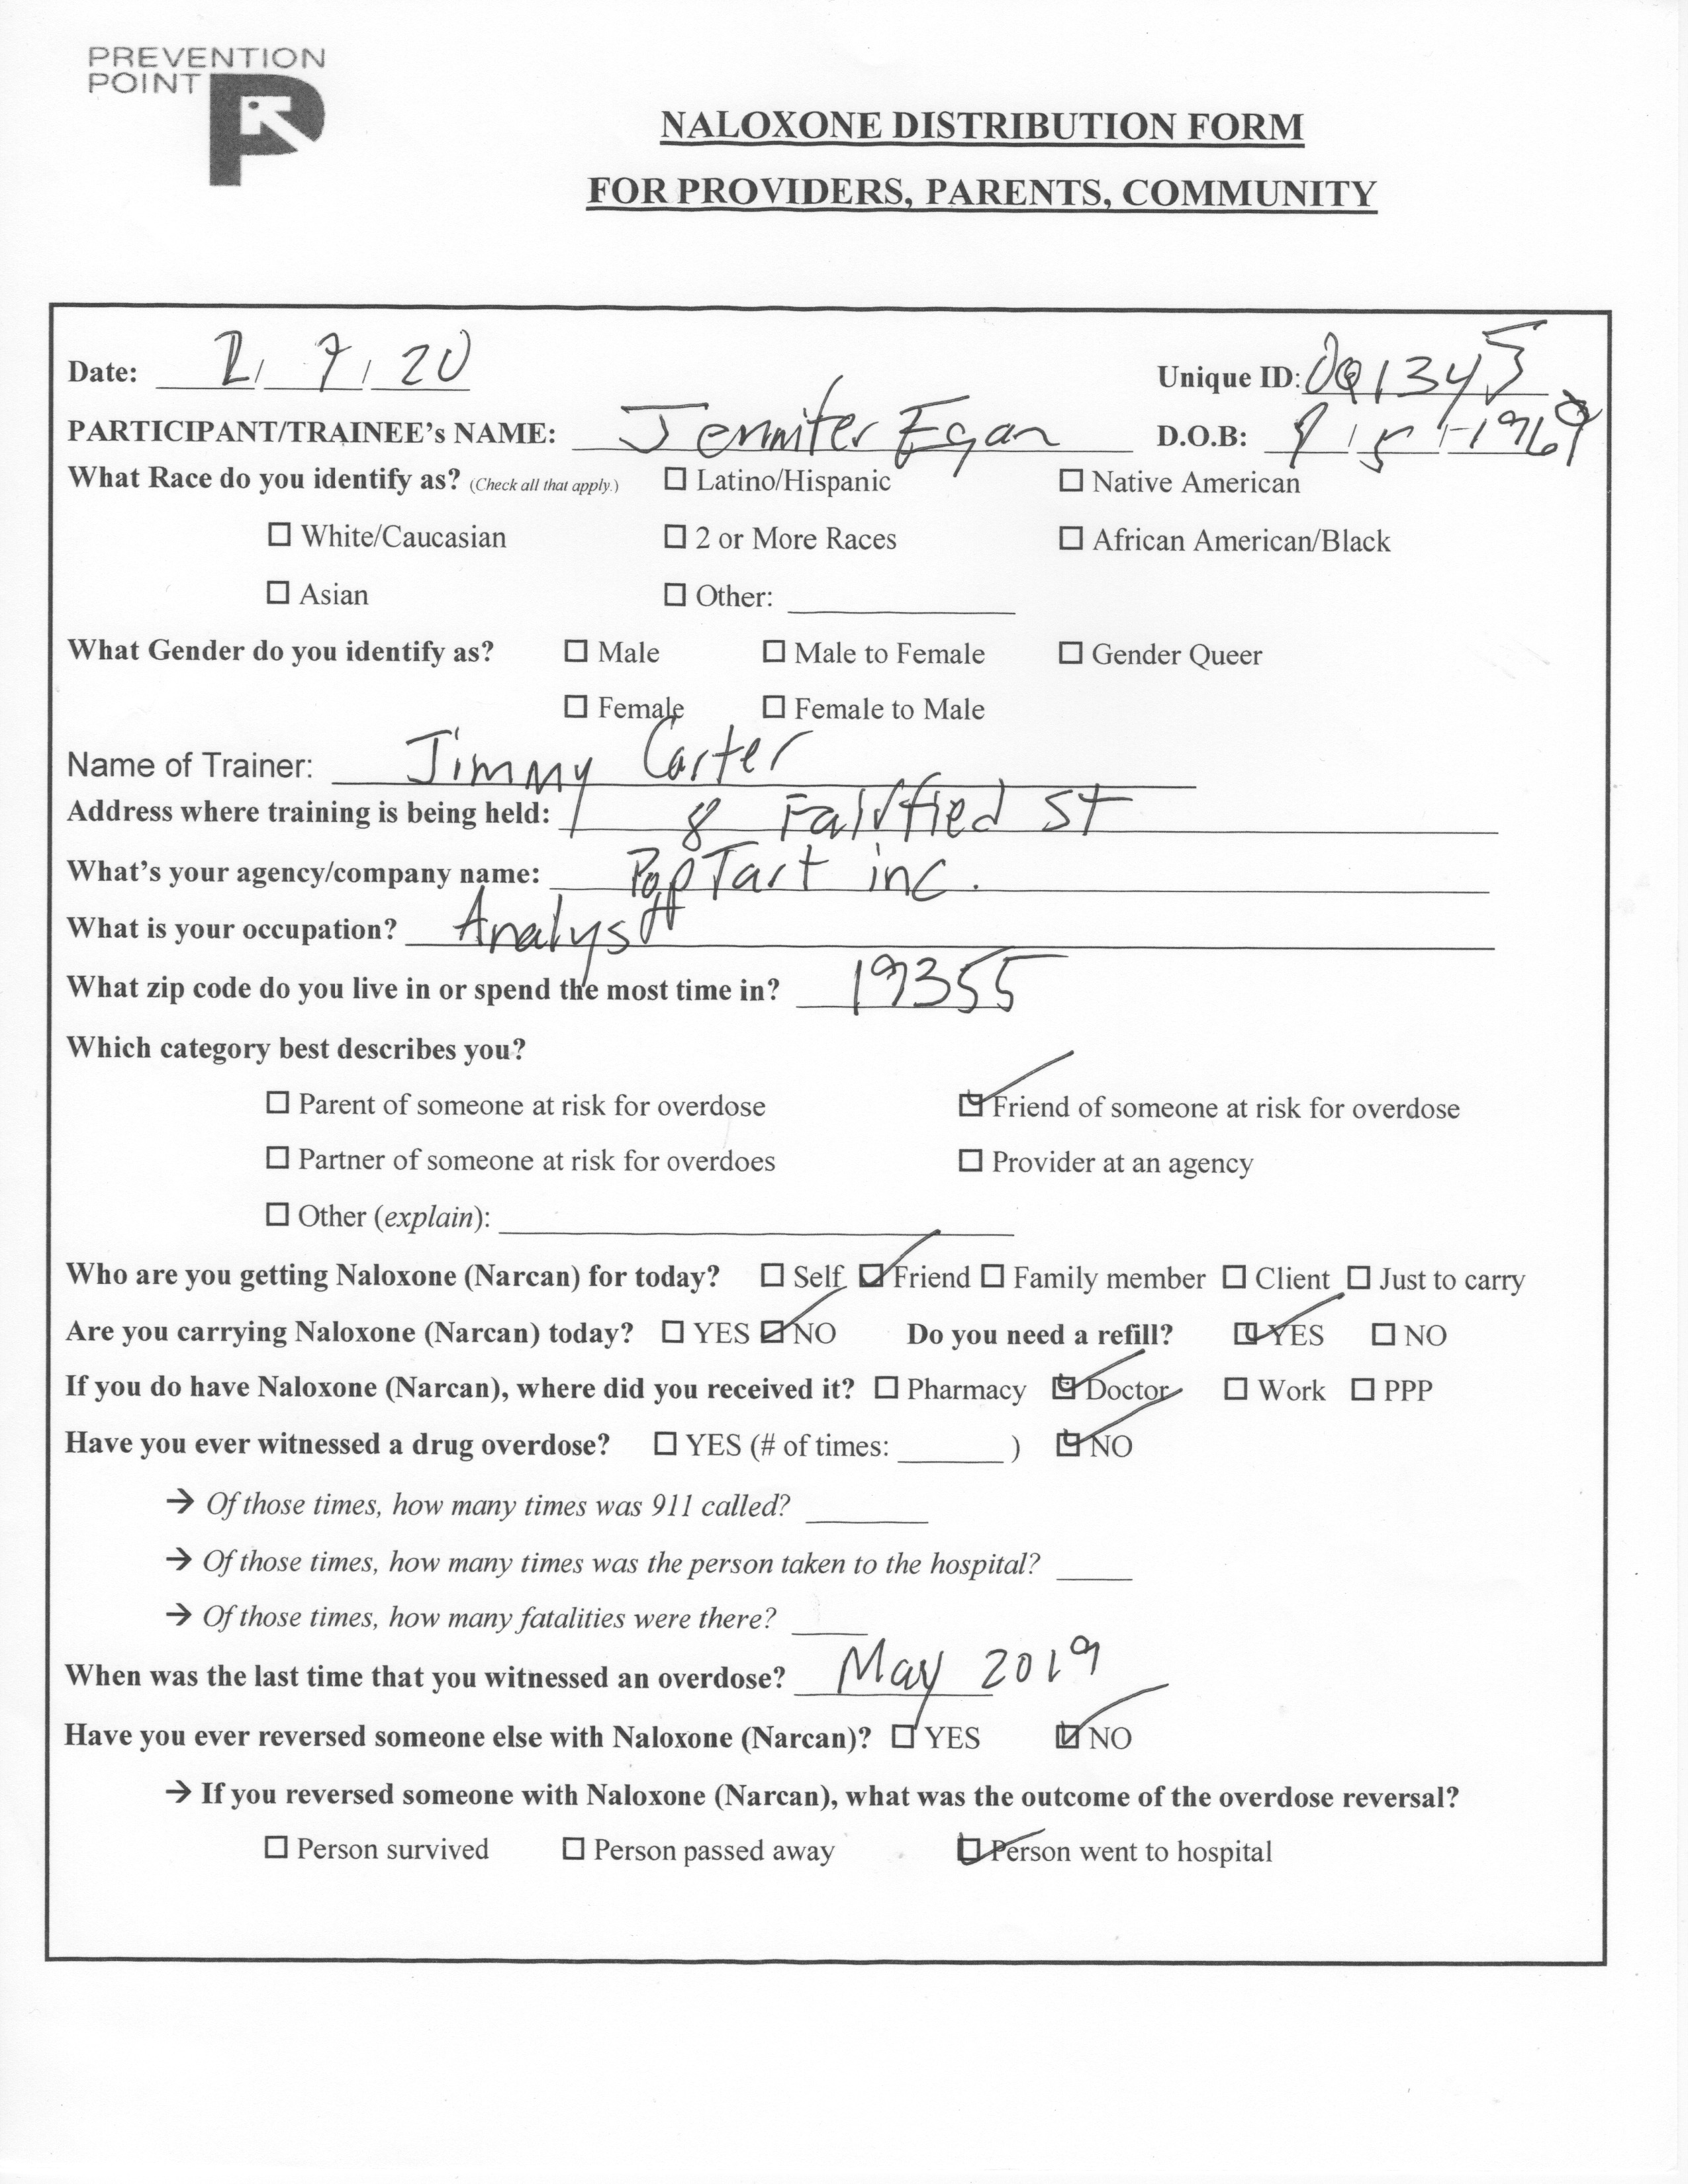 PREVENTION
POINT
NALOXONE DISTRIBUTION FORM
FOR PROVIDERS, PARENTS, COMMUNITY
Date: 2/ 7 / 20 Unique ID: 1345
PARTICIPANT/TRAINEE's NAME: Jennifer Egan D.O.B: / 5 / 1969
What Race do you identify as? (Check all that apply.) ☐ Latino/Hispanic ☐ Native American
☐ White/Caucasian ☐ 2 or More Races ☐ African American/Black
☐ Asian ☐ Other: ____
What Gender do you identify as? ☐ Male ☐ Male to Female ☐ Gender Queer
☐ Female ☐ Female to Male
Name of Trainer: Jimmy Carter
Address where training is being held: 8 St
What's your agency/company name: PopTart inc.
What is your occupation? Analyst
What zip code do you live in or spend the most time in? 19355
Which category best describes you?
☐ Parent of someone at risk for overdose ☑ Friend of someone at risk for overdose
☐ Partner of someone at risk for overdoes ☐ Provider at an agency
☐ Other (explain): ____
Who are you getting Naloxone (Narcan) for today? ☐ Self ☑ Friend ☐ Family member ☐ Client ☐ Just to carry
Are you carrying Naloxone (Narcan) today? ☐ YES ☑ NO Do you need a refill? ☑ YES ☐ NO
If you do have Naloxone (Narcan), where did you received it? ☐ Pharmacy ☑ Doctor ☐ Work ☐ PPP
Have you ever witnessed a drug overdose? ☐ YES (# of times: ____ ) ☑ NO
→ Of those times, how many times was 911 called? ____
→ Of those times, how many times was the person taken to the hospital? ____
→ Of those times, how many fatalities were there? ____
When was the last time that you witnessed an overdose? May 2019
Have you ever reversed someone else with Naloxone (Narcan)? ☐ YES ☑ NO
→ If you reversed someone with Naloxone (Narcan), what was the outcome of the overdose reversal?
☐ Person survived ☐ Person passed away ☑ Person went to hospital